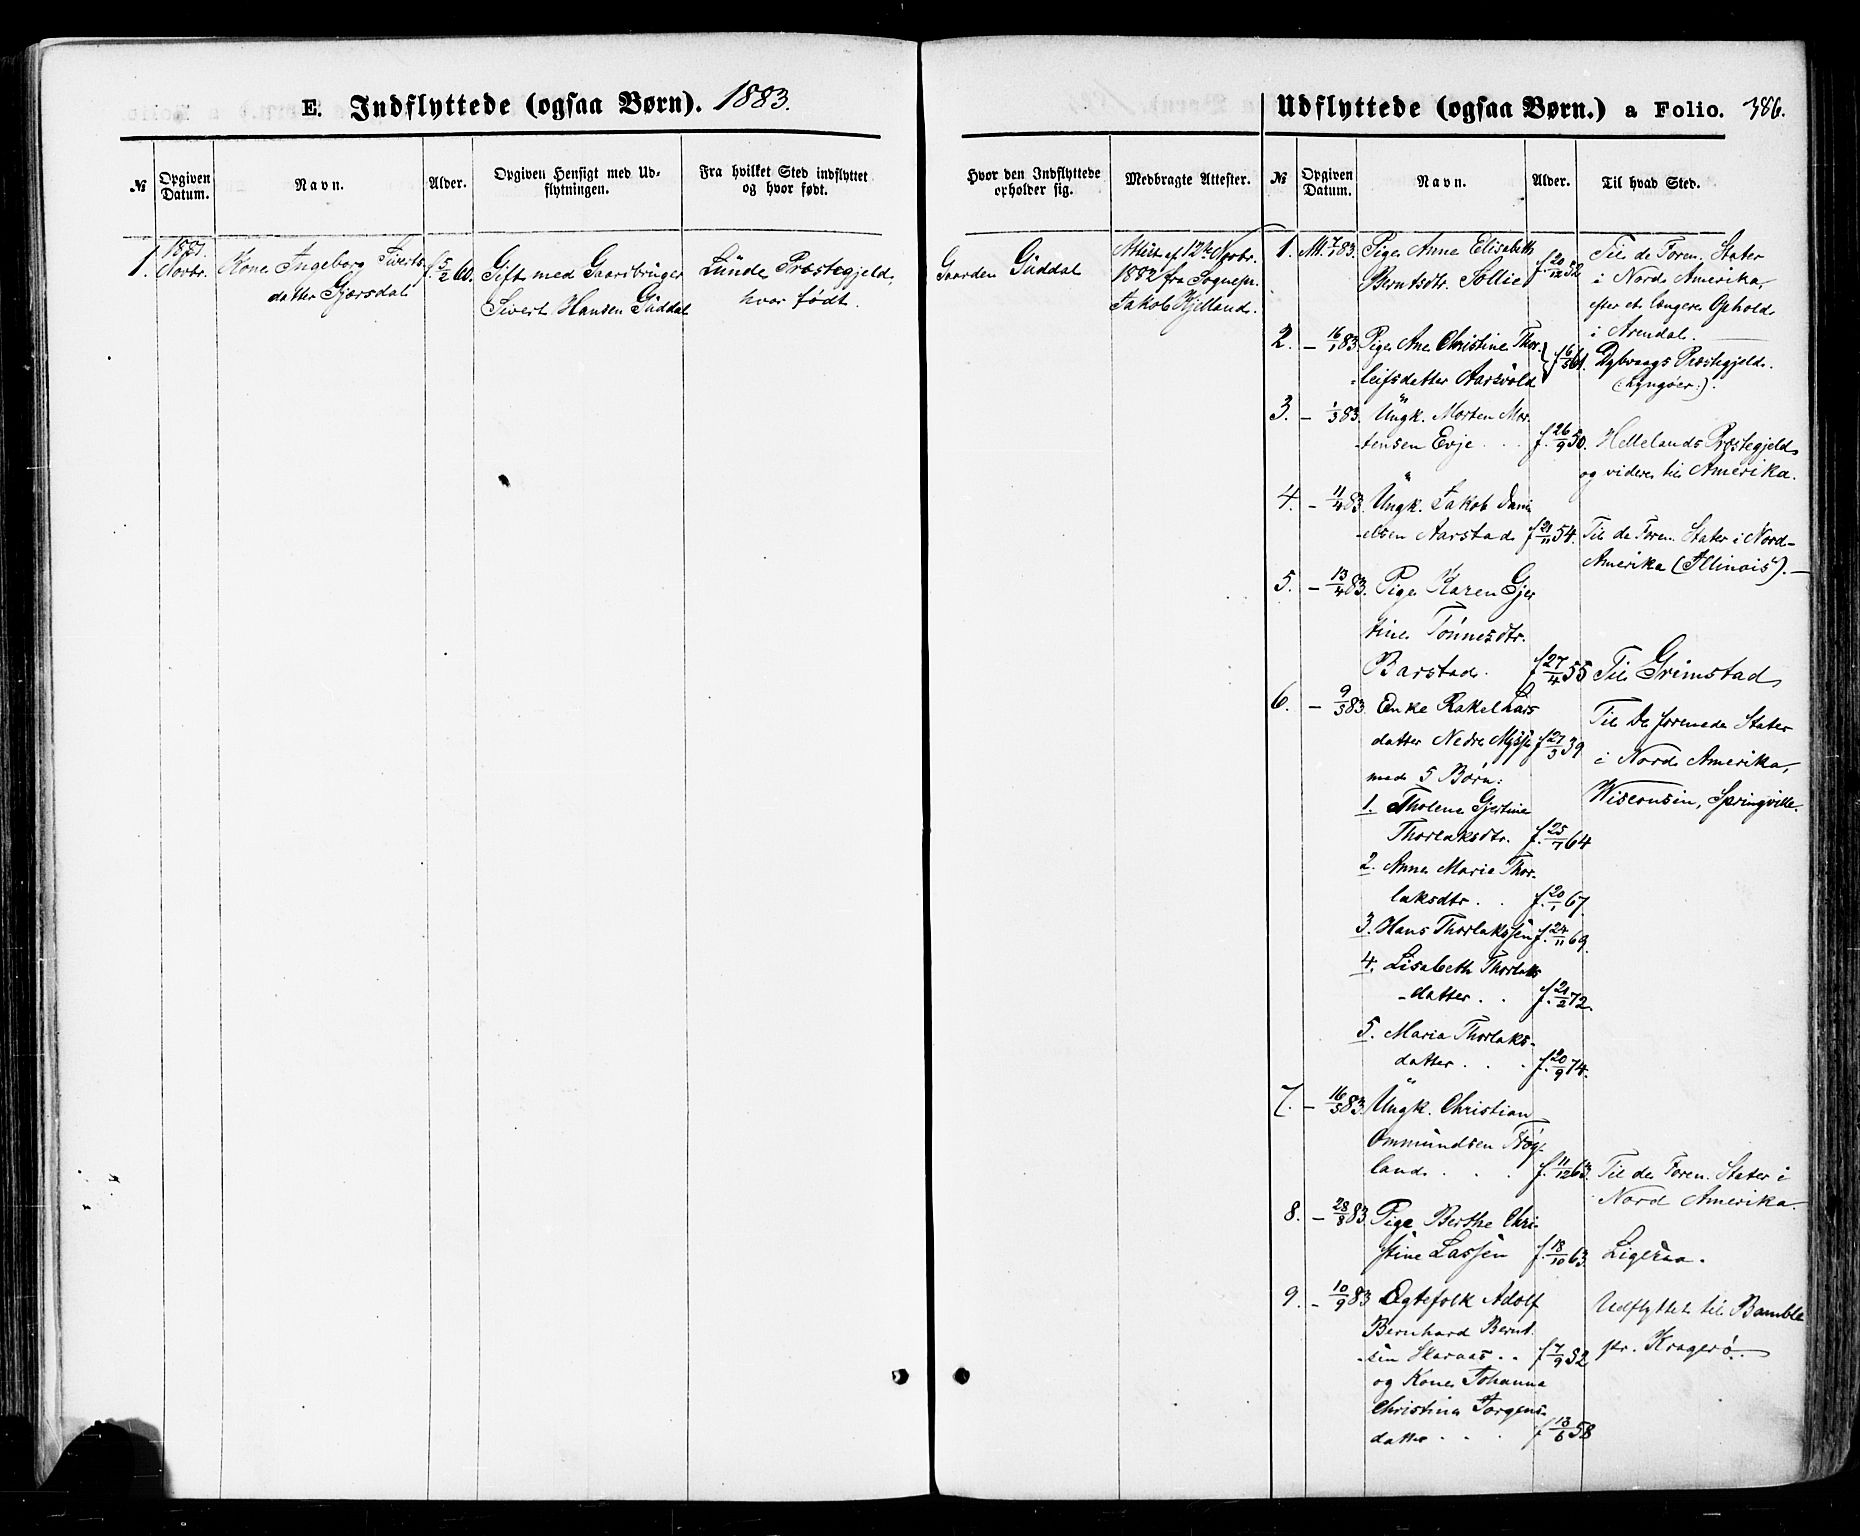 E. Indflyttede (ogsaa Børn). 1883.
№
Opgiven Datum.
Navn.
Alder.
Opgiven Hensigt med Udflytningen.
Fra hvilket Sted indflyttet og hvor født.
Hvor den Indflyttede opholder sig.
Medbragte Attester.
1. Novbr. Kone Ingeborg Siverts- f. 5/2 60. Gift med Gaardbruger Lunde Præstegjeld, Gaarden Guddal Attest af 12te Novbr.
datter Gjærsdal Sivert Hansen Guddal hvor født. 1882 fra Sognepr.
Jakob Kjelland.
Udflyttede (ogsaa Børn.) a Folio. 386.
№
Opgiven Datum.
Navn.
Alder.
Til hvad Sted.
1. M. 7/1 83. Pige Anne Elisabeth f. 20/12 52 Til de Foren. Stater
Berntsdtr. Sollie i Nord Amerika,
efter et længere Ophold
i Arendal.
2. – 16/1 83. Pige Ane Christine Thor- f. 6/5 61. Dybvaags Præstegjeld.
leifsdatter Aarsvold (: Lyngøer :).
3. – 1/3 83. Ungk. Morten Mor-
tensen Evje . . f. 26/9 50. Hellelands Præstegjeld
og videre til Amerika.
4. – 11/4 83. Ungk. Jakob Dani-
elsen Aarstad f. 21/11 54. Til de Foren. Stater i Nord-
Amerika (Illinois). –
5. – 13/4 83. Pige Karen Gjer
tine Tønnesdtr.
Barstad. f. 27/4 55 Til Grimstad
6. – 9/5 83. Enke Rakel Lars
datter Nedre Mysse f. 27/3 39 Til De forenede Stater
med 5 Børn: i Nord Amerika,
1. Tholene Gjertine Wisconsin, Springville.
Thorlaksdtr. f. 25/7 64
2. Anne Marie Thor-
laksdtr . . f. 20/1 67.
3. Hans Thorlakssen f. 24/11 69.
4. Lisabeth Thorlaks
-datter . . f. 21/2 72.
5. Maria Thorlaks-
datter . . . f. 20/9 74.
7. – 16/5 83. Ungk. Christian
Ommundsen
land. . . f. 11/12 63. Til de Foren. Stater i
Nord Amerika.
8. – 28/8 83. Pige Berthe Chri-
stine Lassen f. 18/10 63. Ligesaa.
9. – 10/9 83 Ægtefolk Adolf Udflyttet til Bamble
Bernhard Bernt-
sen Skaraas . . f. 7/9 52 pr. Kragerø.
og Kone Johanna
Christine Jørgens-
datter . . . f. 13/6 58